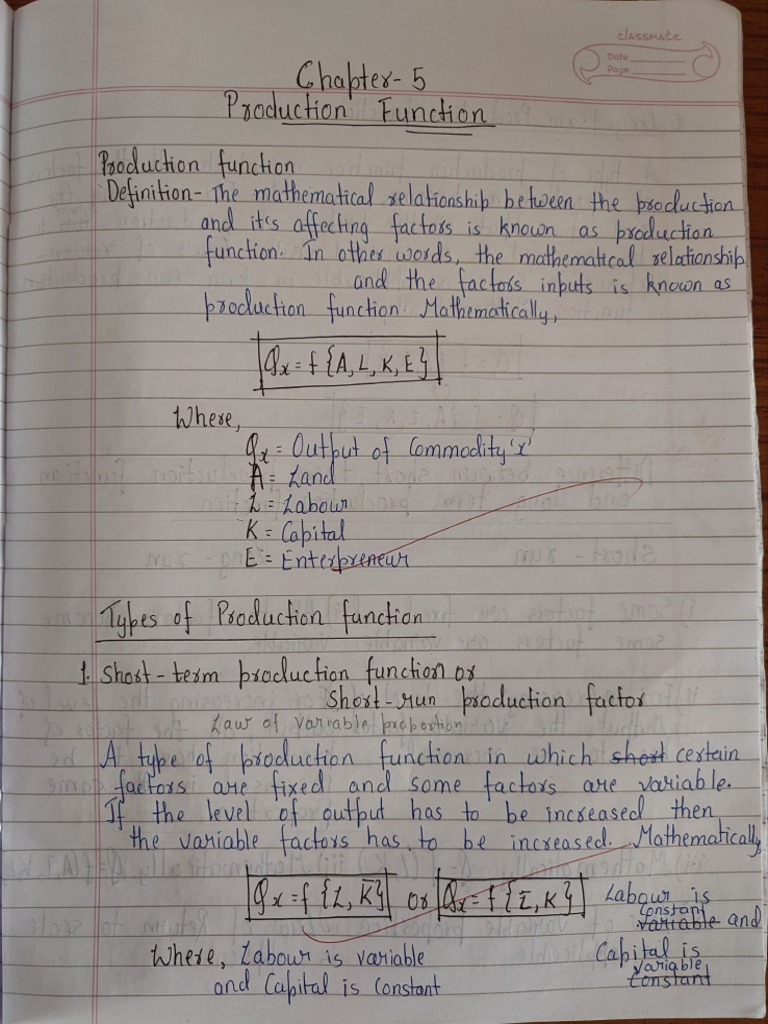 classmate
Date
Page
Chapter-5
Production Function
Production function
Definition- The mathematical relationship between the production
and it's affecting factors is known as production
function. In other words, the mathematical relationship
and the factors inputs is known as
production function. Mathematically,
Qx = f {A, L, K, E}
Where,
Qx = Output of Commodity 'x'
A = Land
L = Labour
K = Capital
E = Enterpreneur
Types of Production function
1. Short-term production function or
Short-run production factor
Law of variable proportion
A type of production function in which short certain
factors are fixed and some factors are variable.
If the level of output has to be increased then
the variable factors has to be increased. Mathematically,
Qx = f {L, K̅} or Qx = f {L̅, K} Labour is
constant
variable and
Where, Labour is variable Capital is
variable
and Capital is constant constant